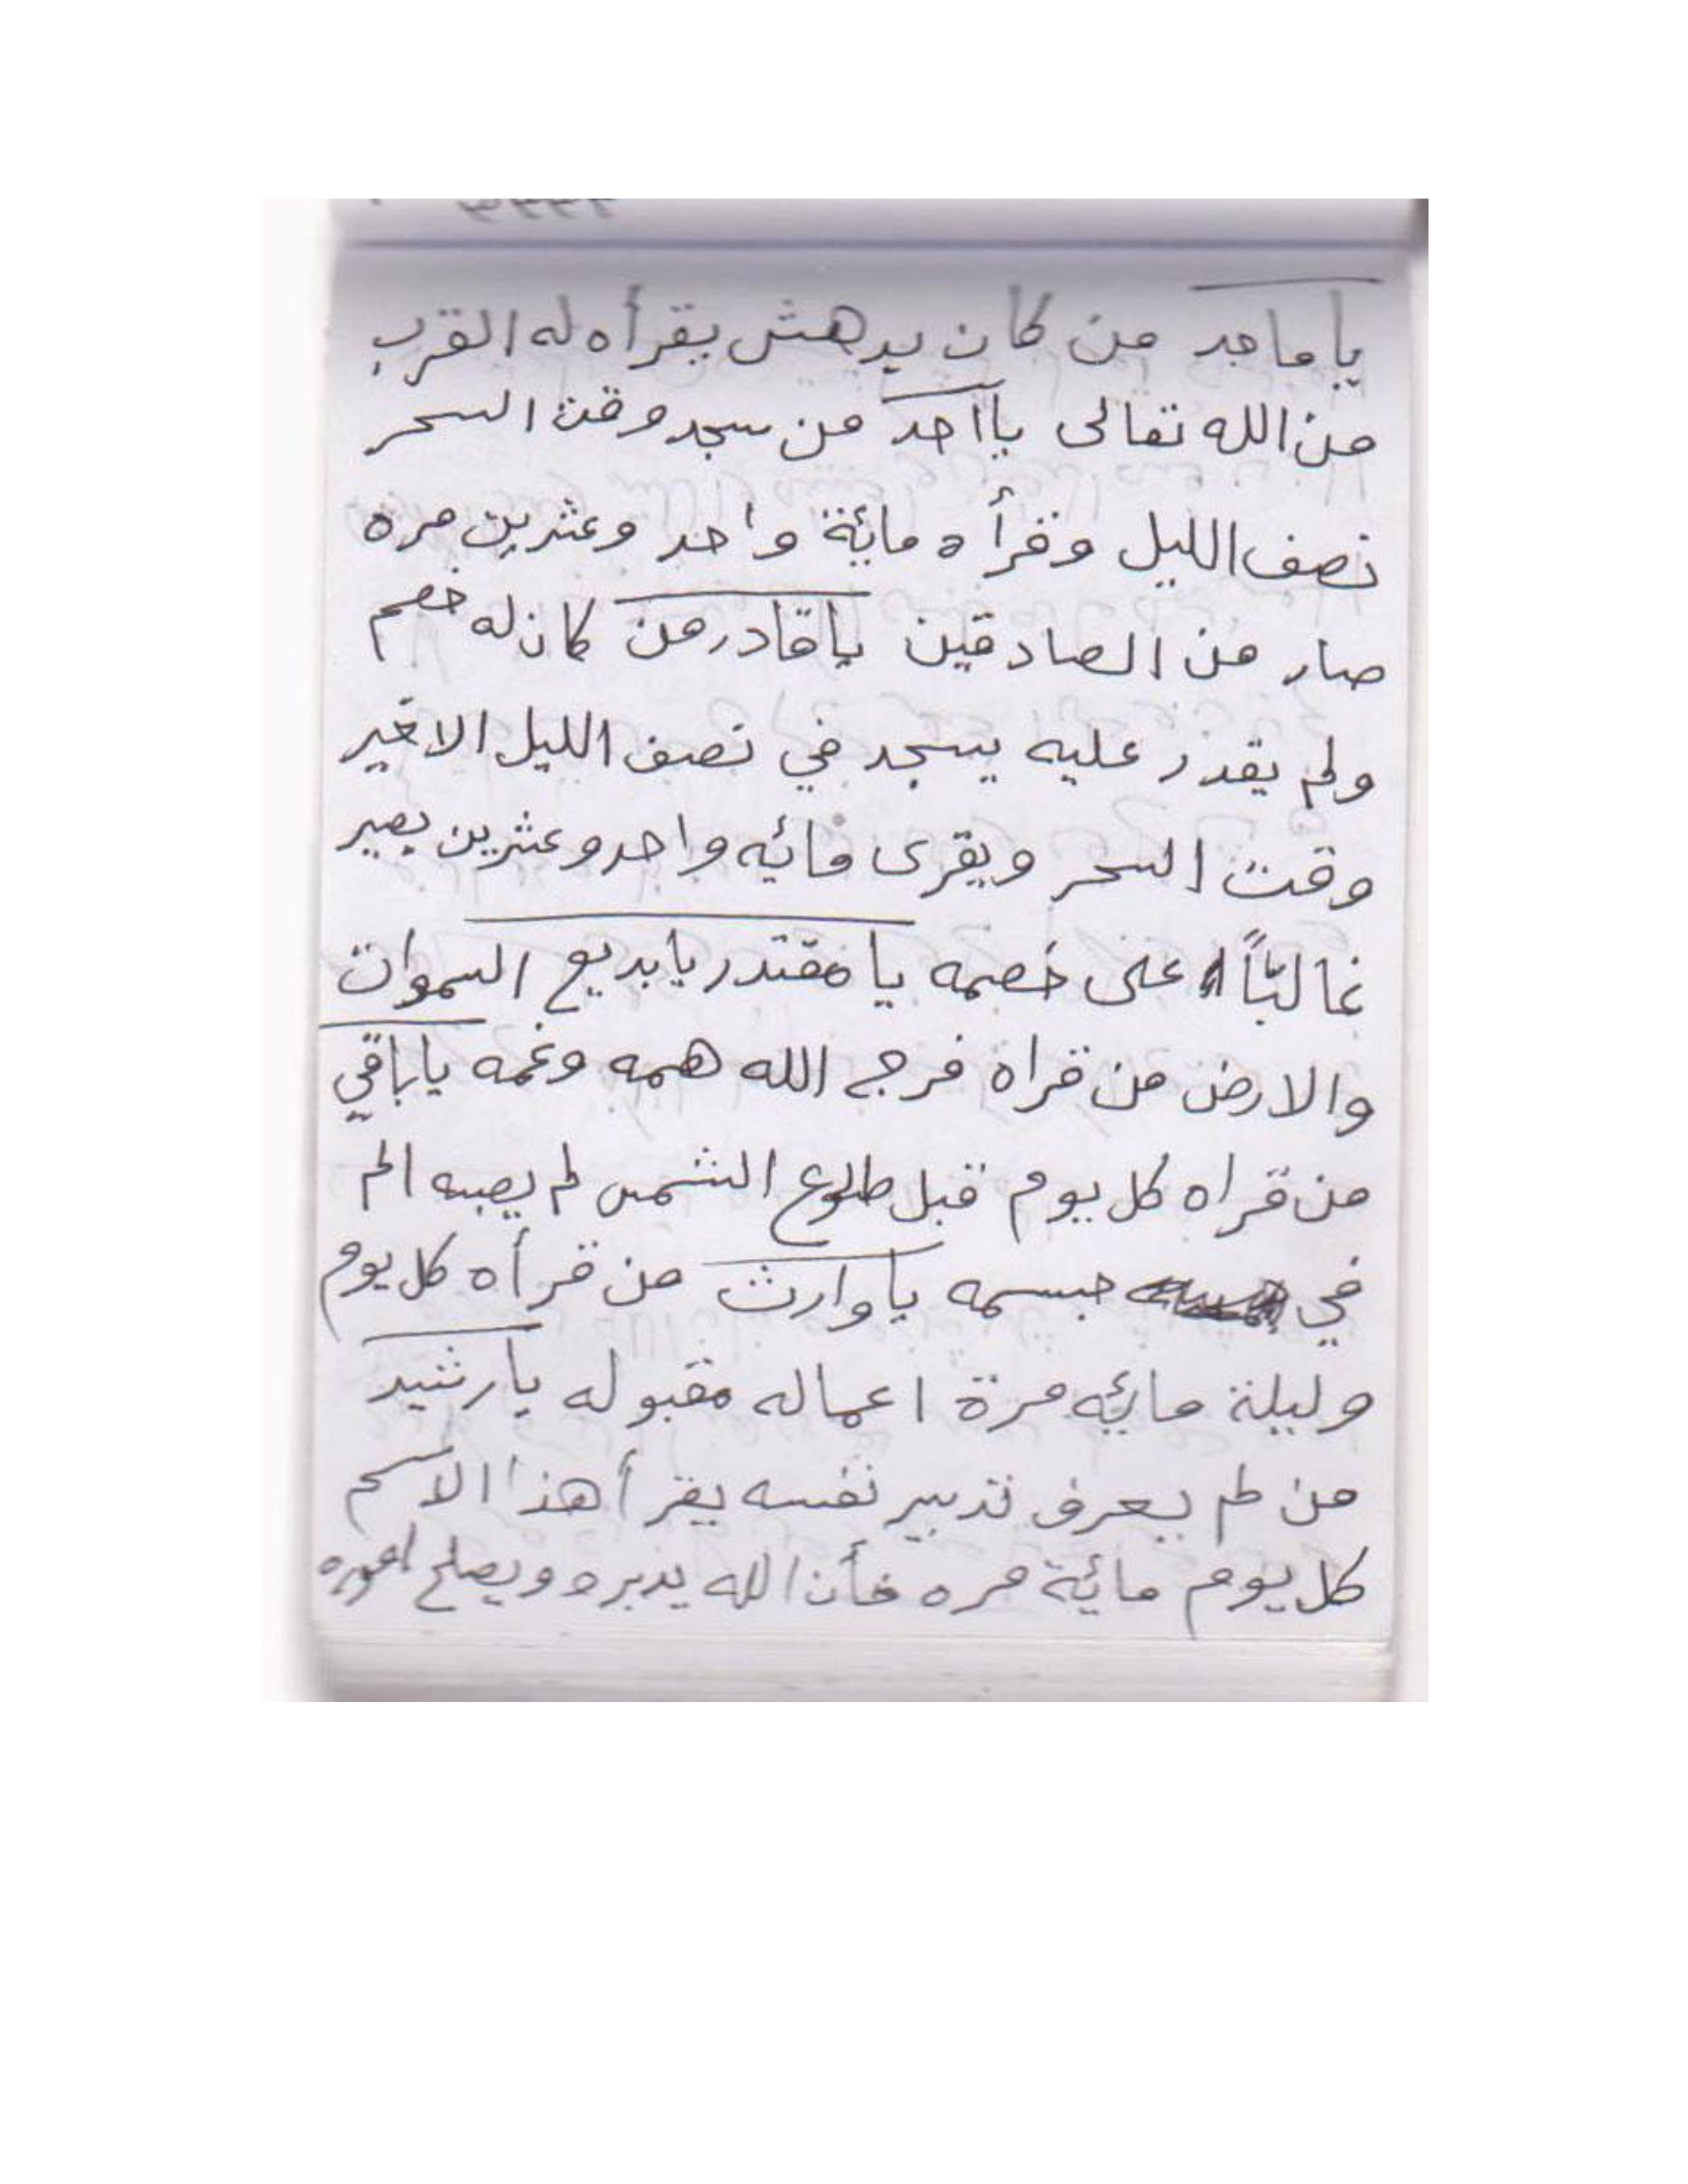 يا ماجد من كان يدهش يقرأه له القرب
من الله تعالى يااحد من سجد وقت السحر
نصف الليل وقرأه مائة واحد وعشرين مره
صار من الصادقين ياقادر من كان له خصم
ولم يقدر عليه يسجد في نصف الليل الاخير
وقت السحر ويقرى مائيه واحد وعشرين يصير
غالباً على خصمه يا مقتدر يابديع السموات
والارض من قراه فرج الله همه وغمه ياباقي
من قراه كل يوم قبل طلوع الشمس لم يصبه الم
في جسمه ياوارث من قرأه كل يوم
وليلة مائيه مرة اعماله مقبوله يارشيد
من لم يعرف تدبير نفسه يقرأ هذا الاسم
كل يوم مائية مره فأن الله يدبره ويصلح اموره